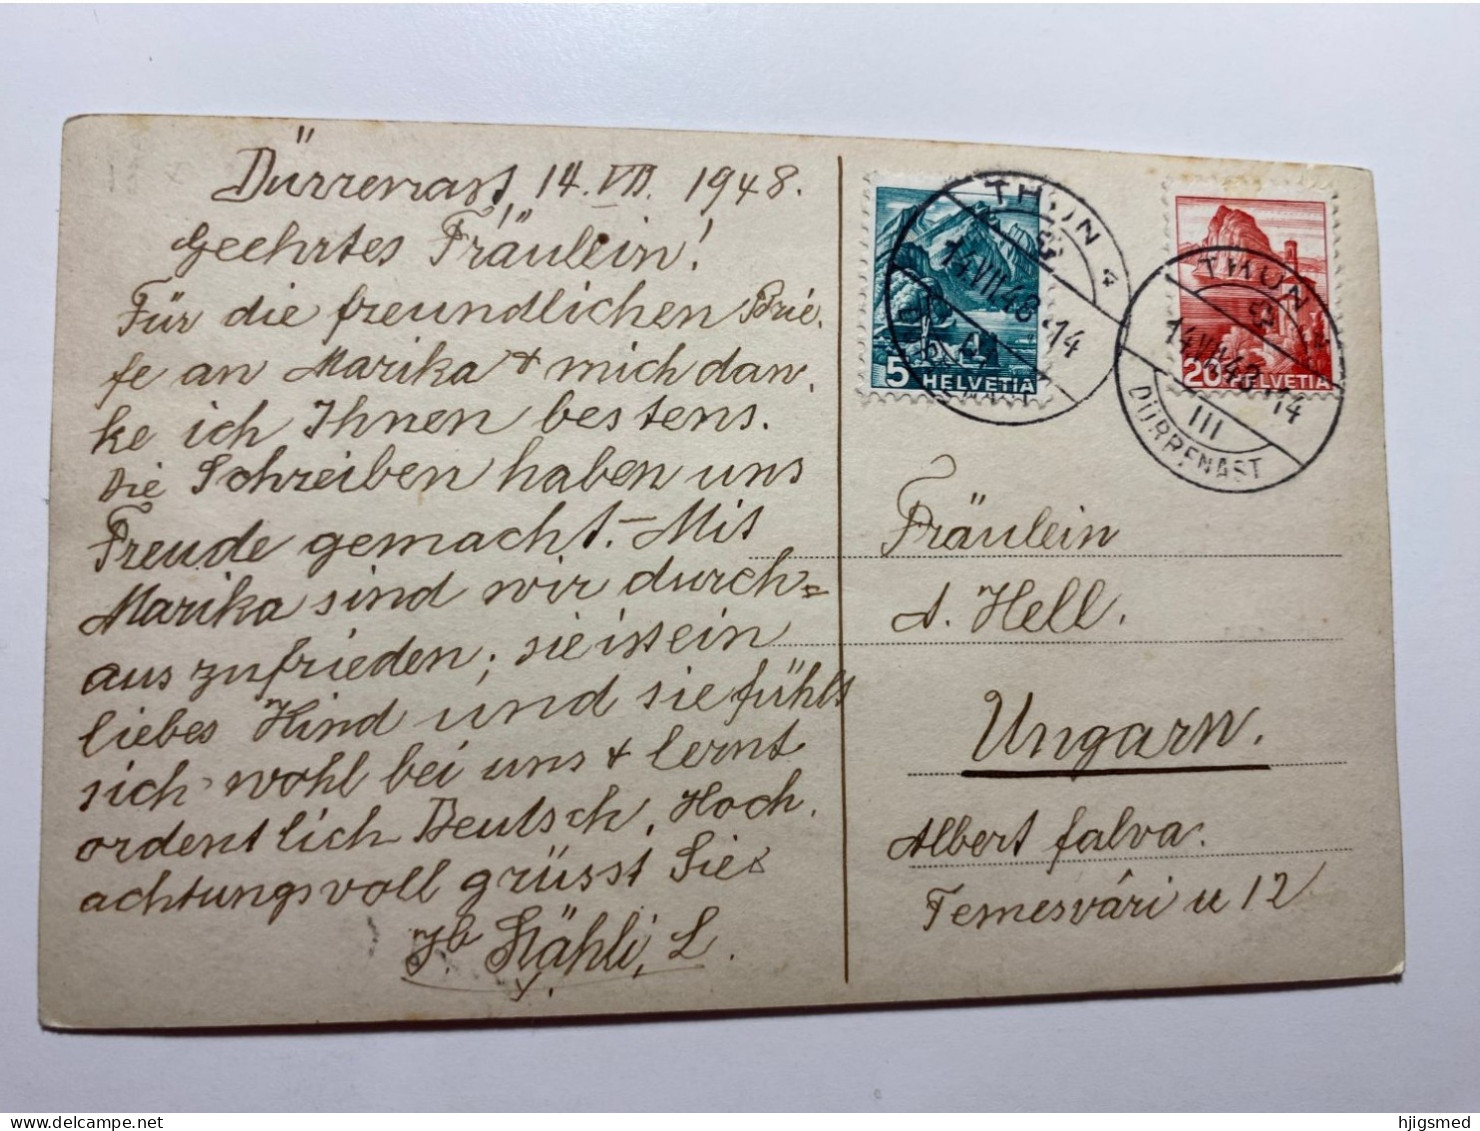 Dürrenast, 14. VII. 1948.
Geehrtes Fräulein!
Für die freundlichen Brie-
fe an Marika + mich dan-
ke ich Ihnen bestens.
Die Schreiben haben uns
Freude gemacht. – Mit
Marika sind wir durch=
aus zufrieden; sie ist ein
liebes Kind und sie fühlt
sich wohl bei uns + lernt
ordentlich Deutsch. Hoch-
achtungsvoll grüsst Sie
Jb Stähli, L.
5 HELVETIA
THUN 3
14.VII.48-14
20 HELVETIA
THUN 3
14.VII.48-14
III
DÜRRENAST
Fräulein
A. Hell.
Ungarn.
Albert falva.
Temesvári u 12
hjigsmed